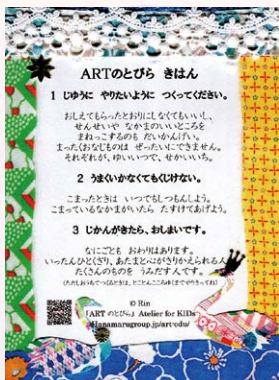 ARTのとびら きはん
1 じゆうに やりたいように つくってください。
おしえてもらったとおりにしなくてもいいし、
せんせいや なかまのいいところを
まねっこするのも だいかんげい。
まったくおなじものは ぜったいにできません。
それぞれが、ゆいいつで、せかいいち。
2 うまくいかなくてもくじけない。
こまったときは いつでもしつもんしよう。
こまっているなかまがいたら たすけてあげよう。
3 じかんがきたら、おしまいです。
なにごとも おわりはあります。
いったんひといきり、あたまと心がきりかえられる人が
たくさんのものを うみだす人です。
© Rin
「ARTのとびら」 Atelier for KIDs
Hanamarugroup.jp/art-edu/